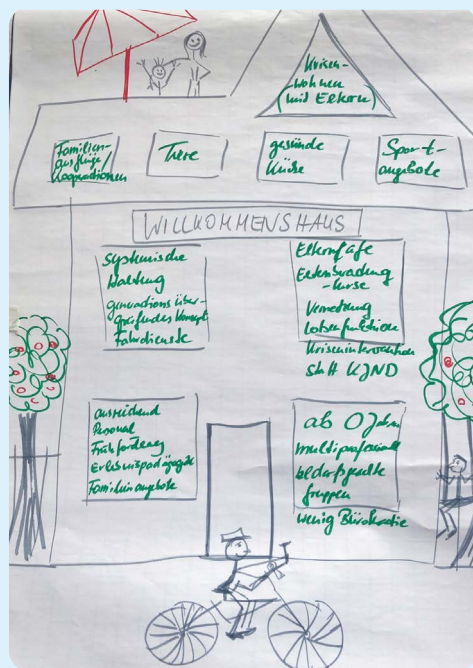 Krisen-
wohnen
(mit Eltern)
Familien-
ausflüge/
Kooperationen
Tiere
gesunde
Küche
Sport-
angebote
WILLKOMMENSHAUS
Systemische
Haltung
generationsüber-
greifendes Konzept
Fahrdienste
Elterncafe
Elternberatung
-kurse
Vernetzung
Lotsenfunktion
Krisenintervention
statt KJND
ausreichend
Personal
Frühförderung
Erlebnispädagogik
Familienangebote
ab 0 Jahren
multiprofessionell
bedarfsgerechte
Gruppen
wenig Bürokratie